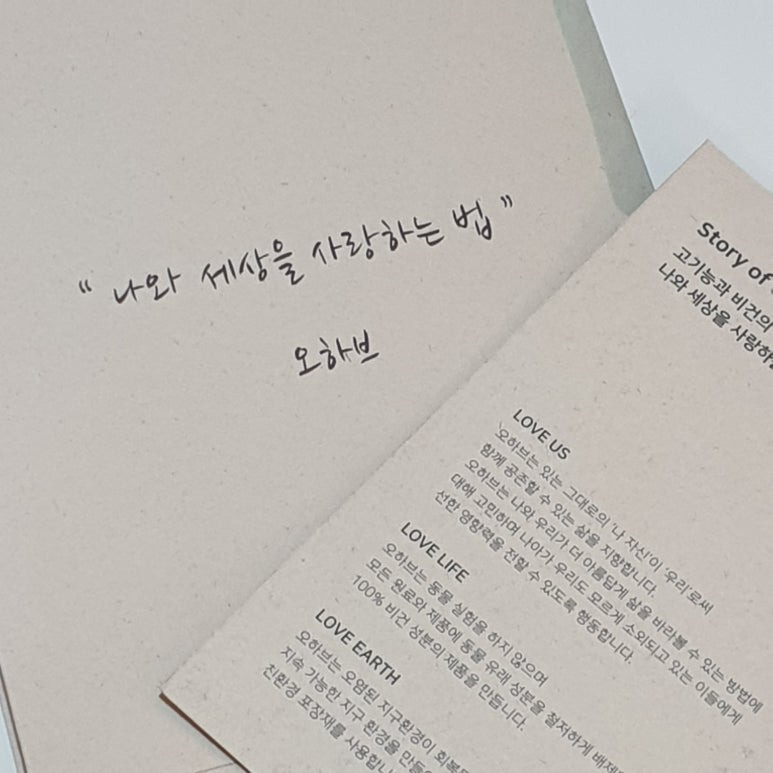 “ 나와 세상을 사랑하는 법 ”
오하브
Story of
고기능과 비건의
나와 세상을
LOVE US
오하브는 있는 그대로의 '나 자신'이 '우리'로써
함께 공존할 수 있는 삶을 지향합니다.
오하브는 나와 우리가 더 아름답게 삶을 바라볼 수 있는 방법에
대해 고민하며 나아가 우리도 모르게 소외되고 있는 이들에게
선한 영향력을 전할 수 있도록 행동합니다.
LOVE LIFE
오하브는 동물 실험을 하지 않으며
모든 원료와 제품에 동물 유래 성분을 철저하게
100% 비건 성분의 제품을 만듭니다.
LOVE EARTH
오하브는 오염된 지구환경이
지속 가능한 지구 환경을
친환경 포장재를